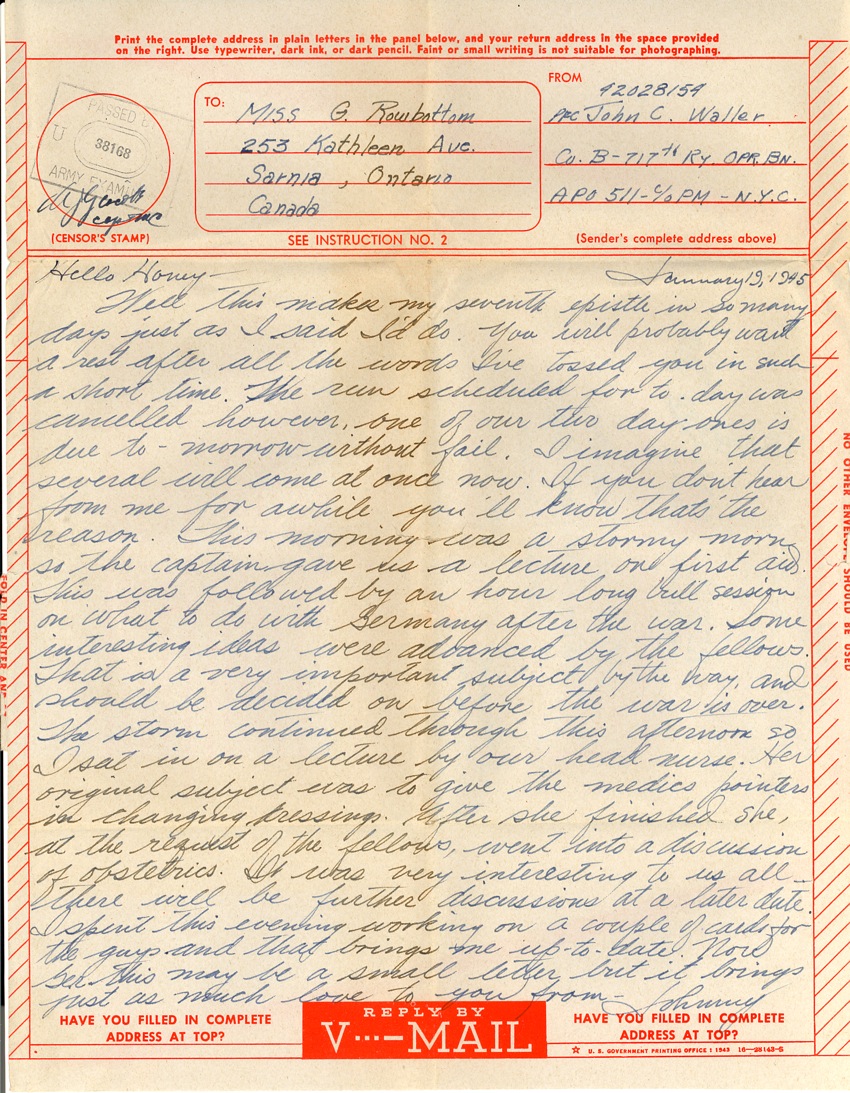 Print the complete address in plain letters in the panel below, and your return address in the space provided
on the right. Use typewriter, dark ink, or dark pencil. Faint or small writing is not suitable for photographing.
PASSED B
U
38168
ARMY EXAMI
(CENSOR'S STAMP)
TO:
Miss G. Rowbottom
253 Kathleen Ave.
Sarnia, Ontario
Canada
SEE INSTRUCTION NO. 2
FROM
42028154
Pfc John C. Waller
Co. B-717th Ry. OPR. BN.
APO 511-c/o PM - N.Y.C.
(Sender's complete address above)
Hello Honey- January 19, 1945
Well this makes my seventh epistle in so many
days just as I said I'd do. You will probably want
a rest after all the words I've tossed you in such
a short time. The run scheduled for to-day was
cancelled however, one of our two day-ones is
due to-morrow without fail. I imagine that
several will come at once now. If you don't hear
from me for awhile you'll know that's the
reason. This morning was a stormy morn
so the captain gave us a lecture on first aid.
This was followed by an hour long bull session
on what to do with Germany after the war. Some
interesting ideas were advanced by the fellows.
That is a very important subject, by the way, and
should be decided on before the war is over.
The storm continued through this afternoon so
I sat in on a lecture by our head nurse. Her
original subject was to give the medics pointers
in changing dressings. After she finished she,
at the request of the fellows, went into a discussion
of obstetrics. It was very interesting to us all-
there will be further discussions at a later date.
I spent this evening working on a couple of cards for
the guys and that brings me up-to-date. Now
Ger. this may be a small letter but it brings
just as much love to you from- Johnny
HAVE YOU FILLED IN COMPLETE
ADDRESS AT TOP?
REPLY BY
V···—MAIL
HAVE YOU FILLED IN COMPLETE
ADDRESS AT TOP?
☆ U. S. GOVERNMENT PRINTING OFFICE : 1943 16—28143-5
FOLD IN CENTER AN
NO OTHER ENVELOPE SHOULD BE USED